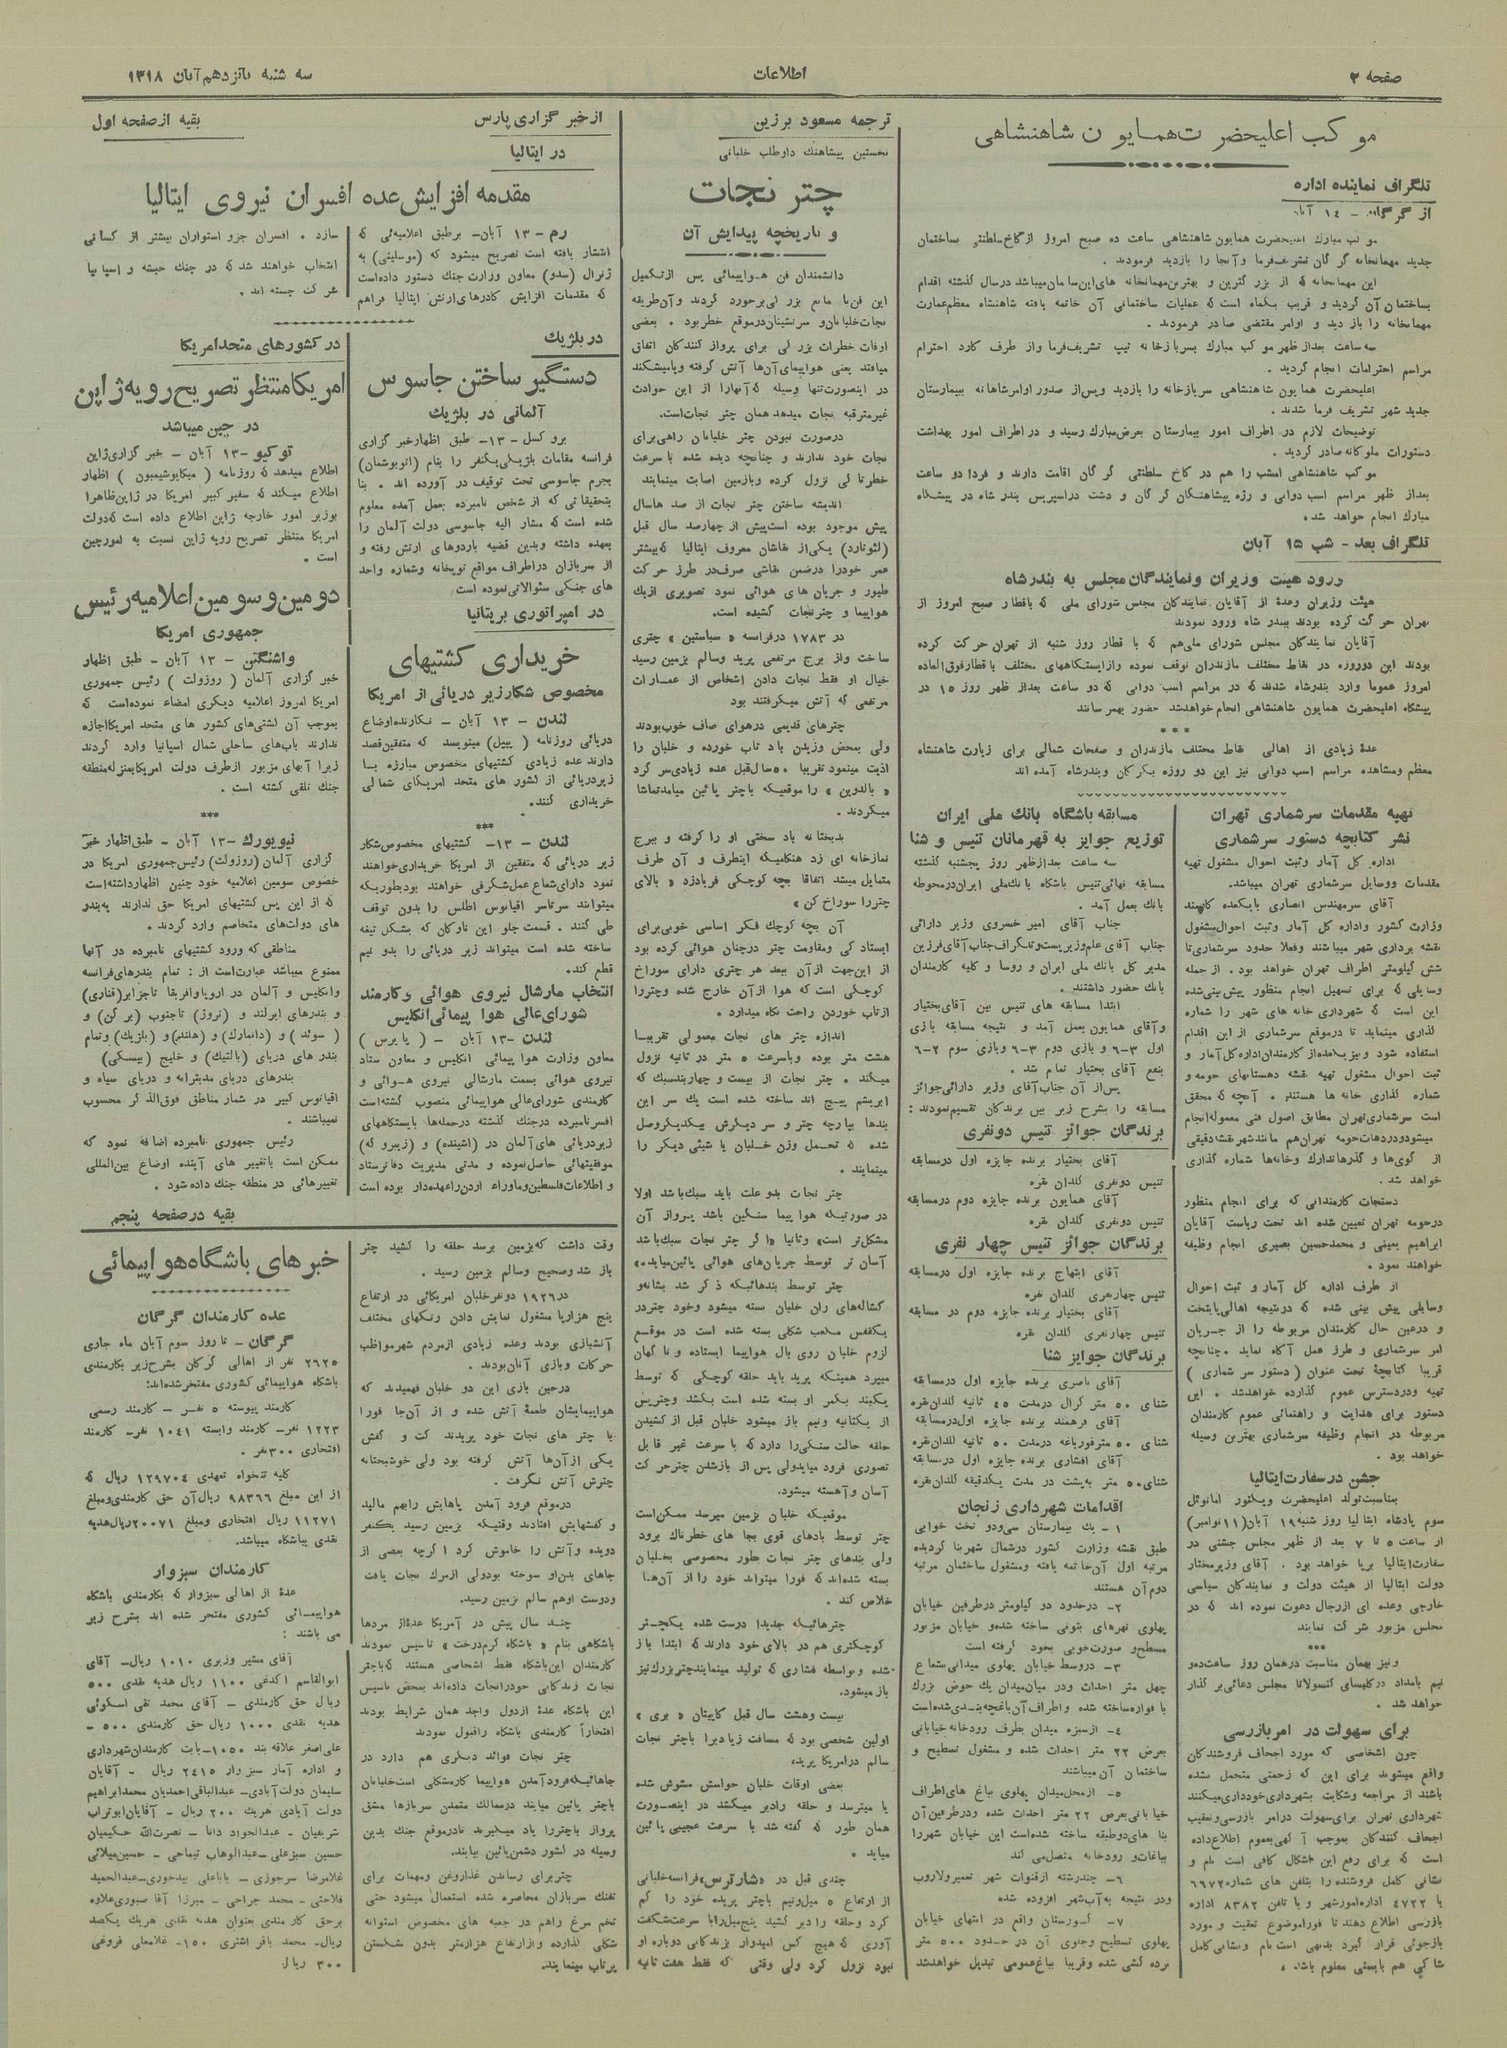 صفحه ۲
اطلاعات
سه شنبه پانزدهم آبان ۱۳۱۸
موکب اعلیحضرت همایون شاهنشاهی
تلگراف نماینده اداره
از گرگان - ۱۴ آبان
موکب مبارک اعلیحضرت همایون شاهنشاهی ساعت ده صبح امروز از کاخ سلطنتی ساختمان
جدید مهمانخانه گرگان تشریف فرما و آنجا را بازدید فرمودند.
این مهمانخانه که از بزرگترین و بهترین مهمانخانه های این سامان میباشد در سال گذشته اقدام
بساختمان آن گردید و قریب یکماه است که عملیات ساختمانی آن خاتمه یافته شاهنشاه معظم عمارت
مهمانخانه را بازدید و اوامر مقتضی صادر فرمودند.
سه ساعت بعد از ظهر موکب مبارک بسربازخانه تیپ تشریف فرما و از طرف گارد احترام
مراسم احترامات انجام گردید.
اعلیحضرت همایون شاهنشاهی سربازخانه را بازدید و پس از صدور اوامر شاهانه ببیمارستان
جدید شهر تشریف فرما شدند.
توضیحات لازم در اطراف امور بیمارستان بعرض مبارک رسید و در اطراف امور بهداشت
دستورات ملوکانه صادر گردید.
موکب شاهنشاهی امشب را هم در کاخ سلطنتی گرگان اقامت دارند و فردا دو ساعت
بعد از ظهر مراسم اسب دوانی و رژه پیشاهنگان گرگان و دشت در اسپریس بندر شاه در پیشگاه
مبارک انجام خواهد شد.
تلگراف بعد - شب ۱۵ آبان
ورود هیئت وزیران و نمایندگان مجلس به بندر شاه
هیئت وزیران و عدهٔ از آقایان نمایندگان مجلس شورای ملی که با قطار صبح امروز از
تهران حرکت کرده بودند ببندر شاه ورود نمودند
آقایان نمایندگان مجلس شورای ملی هم که با قطار روز شنبه از تهران حرکت کرده
بودند این دو روزه در نقاط مختلف مازندران توقف نموده و از ایستگاههای مختلف با قطار فوق العاده
امروز عموما وارد بندر شاه شدند که در مراسم اسب دوانی که دو ساعت بعد از ظهر روز ۱۵ در
پیشگاه اعلیحضرت همایون شاهنشاهی انجام خواهد شد حضور بهمرسانند
***
عدهٔ زیادی از اهالی نقاط مختلف مازندران و صفحات شمالی برای زیارت شاهنشاه
معظم و مشاهده مراسم اسب دوانی نیز این دو روزه بگرگان و بندر شاه آمده اند
تهیه مقدمات سرشماری تهران
نشر کتابچه دستور سرشماری
اداره کل آمار و ثبت احوال مشغول تهیه
مقدمات و وسایل سرشماری تهران میباشد.
آقای سرمهندس انصاری با یکعده کارمند
وزارت کشور و اداره کل آمار و ثبت احوال مشغول
نقشه برداری شهر میباشند و فعلا حدود سرشماری تا
شش کیلومتر اطراف تهران خواهد بود. از جمله
وسایلی که برای تسهیل انجام منظور پیش بینی شده
این است که شهرداری خانه های شهر را شماره
گذاری مینماید تا در موقع سرشماری از این اقدام
استفاده شود و نیز یکعده از کارمندان اداره کل آمار و
ثبت احوال مشغول تهیه نقشه دهستانهای حومه و
شماره گذاری خانه ها هستند. آنچه که محقق
است سرشماری تهران مطابق اصول فنی معموله انجام
میشود و در دهات حومه تهران هم مانند شهر نقشه دقیقی
از کوی ها و گذرها تدارک و خانه ها شماره گذاری
خواهد شد.
دستجات کارمندانی که برای انجام منظور
در حومه تهران تعیین شده اند تحت ریاست آقایان
ابراهیم یمینی و محمدحسین بصیری انجام وظیفه
خواهند نمود.
از طرف اداره کل آمار و ثبت احوال
وسایلی پیش بینی شده که در نتیجه اهالی پایتخت
و در عین حال کارمندان مربوطه را از جریان
امر سرشماری و طرز عمل آگاه نماید. چنانچه
قریبا کتابچهٔ تحت عنوان (دستور سرشماری)
تهیه و در دسترس عموم گذارده خواهد شد. این
دستور برای هدایت و راهنمائی عموم کارمندان
مربوطه در انجام وظیفه سرشماری بهترین وسیله
خواهد بود.
جشن در سفارت ایتالیا
بمناسبت تولد اعلیحضرت ویکتور امانوئل
سوم پادشاه ایتالیا روز شنبه ۱۹ آبان (۱۱ نوامبر)
از ساعت ۵ تا ۷ بعد از ظهر مجلس جشنی در
سفارت ایتالیا برپا خواهد بود. آقای وزیر مختار
دولت ایتالیا از هیئت دولت و نمایندگان سیاسی
خارجی و عده ای از رجال دعوت نموده اند که در
مجلس مزبور شرکت نمایند
***
و نیز بهمان مناسبت در همان روز ساعت ده و
نیم بامداد در کلیسای کنسولاتا مجلس دعائی برگذار
خواهد شد.
برای سهولت در امر بازرسی
چون اشخاصی که مورد اجحاف فروشندگان
واقع میشوند برای این که زحمتی متحمل نشده
باشند از مراجعه و شکایت بشهرداری خودداری میکنند
شهرداری تهران برای سهولت در امر بازرسی و تعقیب
اجحاف کنندگان بموجب آگهی بعموم اطلاع داده
است که برای رفع این اشکال کافی است نام و
نشانی کامل فروشنده را بتلفن های شماره ۶۶۷۲
یا ۴۷۲۲ اداره امور شهر و یا تلفن ۸۳۸۲ اداره
بازرسی اطلاع دهند تا فورا موضوع تعقیب و مورد
بازجوئی قرار گیرد بدیهی است نام و نشانی کامل
شاکی هم بایستی معلوم باشد.
مسابقه باشگاه بانک ملی ایران
توزیع جوایز به قهرمانان تنیس و شنا
سه ساعت بعد از ظهر روز پنجشنبه گذشته
مسابقه نهائی تنیس باشگاه بانک ملی ایران در محوطه
بانک بعمل آمد.
جناب آقای امیر خسروی وزیر دارائی
جناب آقای علم وزیر پست و تلگراف جناب آقای فرزین
مدیر کل بانک ملی ایران و روسا و کلیه کارمندان
بانک حضور داشتند.
ابتدا مسابقه های تنیس بین آقای بختیار
و آقای همایون بعمل آمد و نتیجه مسابقه بازی
اول ۳-۶ و بازی دوم ۳-۶ و بازی سوم ۲-۶
بنفع آقای بختیار تمام شد.
پس از آن جناب آقای وزیر دارائی جوائز
مسابقه را بشرح زیر بین برندگان تقسیم نمودند:
برندگان جوائز تنیس دو نفری
آقای بختیار برنده جایزه اول در مسابقه
تنیس دو نفری گلدان نقره
آقای همایون برنده جایزه دوم در مسابقه
تنیس دو نفری گلدان نقره
برندگان جوائز تنیس چهار نفری
آقای ابتهاج برنده جایزه اول در مسابقه
تنیس چهار نفری گلدان نقره
آقای بختیار برنده جایزه دوم در مسابقه
تنیس چهار نفری گلدان نقره
برندگان جوایز شنا
آقای ناصری برنده جایزه اول در مسابقه
شنای ۵۰ متر کرال در مدت ۴۵ ثانیه گلدان نقره
آقای فرهمند برنده جایزه اول در مسابقه
شنای ۵۰ متر قورباغه در مدت ۵۰ ثانیه گلدان نقره
آقای افشاری برنده جایزه اول در مسابقه
شنای ۵۰ متر به پشت در مدت یکدقیقه گلدان نقره
اقدامات شهرداری زنجان
۱ - یک بیمارستان سی و دو تخت خوابی
طبق نقشه وزارت کشور در شمال شهر بنا گردیده
مرتبه اول آن خاتمه یافته و مشغول ساختمان مرتبه
دوم آن هستند
۲- در حدود دو کیلومتر در طرفین خیابان
پهلوی نهرهای بتونی ساخته شده و خیابان مزبور
مسطح و صورت خوبی بخود گرفته است
۳- در وسط خیابان پهلوی میدانی بشعاع
چهل متر احداث و در میان میدان یک حوض بزرگ
با فواره ساخته شده و اطراف آن باغچه بندی شده است
۴- از سبزه میدان بطرف رودخانه خیابانی
بعرض ۲۲ متر احداث شده و مشغول تسطیح و
ساختمان آن میباشند
۵- از محل میدان پهلوی بباغ های اطراف
خیابانی بعرض ۲۲ متر احداث شده و در طرفین آن
بنا های دو طبقه ساخته شده است این خیابان شهر را
بباغات و رودخانه متصل می کند
۶- چند رشته از قنوات شهر تعمیر و لاروب
و در نتیجه به آب شهر افزوده شده
۷- گورستان واقع در انتهای خیابان
پهلوی تسطیح و جلوی آن در حدود ۵۰۰ متر
نرده کشی شده و قریبا بباغ عمومی تبدیل خواهد شد
ترجمه مسعود برزین
نخستین پیشاهنگ داوطلب خلبانی
چتر نجات
و تاریخچه پیدایش آن
دانشمندان فن هواپیمائی پس از تکمیل
این فن با مانع بزرگی برخورد کردند و آن طریقه
نجات خلبان و سرنشینان در موقع خطر بود. بعضی
اوقات خطرات بزرگی برای پرواز کنندگان اتفاق
میافتد یعنی هواپیمای آن ها آتش گرفته و یا میشکند
در اینصورت تنها وسیله که آنها را از این حوادث
غیر مترقبه نجات میدهد همان چتر نجات است.
در صورت نبودن چتر خلبانان راهی برای
نجات خود ندارند و چنانچه دیده شده با سرعت
خطرناکی نزول کرده و بزمین اصابت مینمایند
اندیشه ساختن چتر نجات از صدها سال
پیش موجود بوده است پیش از چهارصد سال قبل
(لئونارد) یکی از نقاشان معروف ایتالیا که بیشتر
عمر خود را در ضمن نقاشی صرف در طرز حرکت
طیور و جریان های هوائی نمود تصویری از یک
هواپیما و چتر نجات کشیده است.
در ۱۷۸۳ در فرانسه «سباستین» چتری
ساخت و از برج مرتفعی پرید و سالم بزمین رسید
خیال او فقط نجات دادن اشخاص از عمارات
مرتفعی که آتش میگرفتند بود
چترهای قدیمی در هوای صاف خوب بودند
ولی بمحض وزیدن باد تاب خورده و خلبان را
اذیت مینمود تقریبا ۵۰ سال قبل عده زیادی سرگرد
«بالدوین» را موقعیکه با چتر پائین میامد تماشا
میکردند.
بدبختانه باد سختی او را گرفته و ببرج
نمازخانه ای زد هنگامیکه اینطرف و آن طرف
متمایل میشد اتفاقا بچه کوچکی فریاد زد «بالای
چتر را سوراخ کن»
آن بچه کوچک فکر اساسی خوبی برای
ایستادگی و مقاومت چتر در چنان هوائی کرده بود
از این جهت از آن ببعد هر چتری دارای سوراخ
کوچکی است که هوا از آن خارج شده و چتر را
از تاب خوردن راحت نگاه میدارد.
اندازه چتر های نجات معمولی تقریبا
هشت متر بوده و با سرعت ۵ متر در ثانیه نزول
میکند. چتر نجات از بیست و چهار بند سبک که
ابریشم پیچ اند ساخته شده است یک سر این
بندها بپارچه چتر و سر دیگرش بیکدیگر وصل
شده که تحمل وزن خلبان یا شیئی دیگر را
مینمایند.
چتر نجات بدو علت باید سبک باشد اولا
در صورتیکه هواپیما سنگین باشد پرواز آن
مشکل تر است و ثانیا «اگر چتر نجات سبک باشد
آسان تر توسط جریان های هوائی پائین میاید.»
چتر توسط بندهائیکه ذکر شد بشانه و
کشاله های ران خلبان بسته میشود و خود چتر در
یکقفس مکعب شکلی بسته شده است در موقع
لزوم خلبان روی بال هواپیما ایستاده و ناگهان
میپرد همینکه پرید باید حلقه کوچکی که توسط
یکبند بکمر او بسته شده است بکشد و چتر پس
از یکثانیه و نیم باز میشود خلبان قبل از کشیدن
حلقه حالت سنگی را دارد که با سرعت غیر قابل
تصوری فرود میاید ولی پس از باز شدن چتر حرکت
آسان و آهسته میشود.
موقعیکه خلبان بزمین میرسد ممکن است
چتر توسط بادهای قوی بجا های خطرناک برود
ولی بندهای چتر نجات بطور مخصوصی بخلبان
بسته شده اند که فورا میتواند خود را از آن ها
خلاص کند.
چترهائیکه جدیدا درست شده یکچتر
کوچکتری هم در بالای خود دارند که ابتدا باز
شده و بواسطه فشاری که تولید مینماید چتر بزرگ نیز
باز میشود.
بیست و هشت سال قبل کاپیتان «بری»
اولین شخصی بود که مسافت زیادی را با چتر نجات
سالم در امریکا پرید.
بعضی اوقات خلبان حواسش مشوش شده
یا میترسد و حلقه را دیر میکشد در اینصورت
همان طور که گفته شد با سرعت عجیبی پائین
میاید.
چندی قبل در «شارترس» فرانسه خلبانی
از ارتفاع ۵ میل و نیم با چتر پریده خود را گم
کرد و حلقه را دیر کشید پنج میل را با سرعت شگفت
آوری که هیچ کس امیدوار بزندگانی دوباره او
نبود نزول کرد ولی وقتی که فقط هفت ثانیه
وقت داشت که بزمین برسد حلقه را کشید چتر
باز شد و صحیح و سالم بزمین رسید.
در ۱۹۲۶ دو نفر خلبان امریکائی در ارتفاع
پنج هزار پا مشغول نمایش دادن رنگهای مختلف
آتشبازی بودند و عده زیادی از مردم شهر مواظب
حرکات و بازی آنان بودند.
در حین بازی این دو خلبان فهمیدند که
هواپیمایشان طعمهٔ آتش شده و از آن جا فورا
با چتر های نجات خود پریدند کت و کفش
یکی از آن ها آتش گرفته بود ولی خوشبختانه
چترش آتش نگرفت.
در موقع فرود آمدن پاهایش را بهم مالید
و کفشهایش افتادند وقتیکه بزمین رسید یکنفر
دویده و آتش را خاموش کرد اگرچه بعضی از
جاهای بدن او سوخته بود ولی از مرگ نجات یافت
و دوست او هم سالم بزمین رسید.
چند سال پیش در آمریکا عدهٔ از مردها
باشگاهی بنام «باشگاه کرم درخت» تاسیس نمودند
کارمندان این باشگاه فقط اشخاصی هستند که با چتر
نجات زندگانی خود را نجات داده اند بمحض تاسیس
این باشگاه عدهٔ از دول واجد همان شرایط بودند
افتخاراً کارمندی باشگاه را قبول نمودند
چتر نجات فوائد دیگری هم دارد در
جاهائیکه فرود آمدن هواپیما کار مشکلی است خلبانان
با چتر پائین میایند در ممالک متمدن سربازها مشق
پرواز با چتر را یاد میگیرند تا در موقع جنگ بدین
وسیله در کشور دشمن پائین بیایند.
چتر برای رساندن غذا و روغن و مهمات برای
تفنگ سربازان محاصره شده استعمال میشود حتی
تخم مرغ را هم در جعبه های مخصوص استوانه
شکلی گذارده و از ارتفاع هزار متر بدون شکستن
پرتاب مینمایند.
از خبر گزاری پارس
بقیه از صفحه اول
در ایتالیا
مقدمه افزایش عده افسران نیروی ایتالیا
رم - ۱۳ آبان - بر طبق اعلامیه ئی که
انتشار یافته است تصریح میشود که (موسلینی) به
ژنرال (سدو) معاون وزارت جنگ دستور داده است
که مقدمات افزایش کادرهای ارتش ایتالیا فراهم
سازد. افسران جزو استواران بیشتر از کسانی
انتخاب خواهند شد که در جنگ حبشه و اسپانیا
شرکت جسته اند.
در بلژیک
دستگیر ساختن جاسوس
آلمانی در بلژیک
بروکسل - ۱۳ - طبق اظهار خبر گزاری
فرانسه مقامات بلژیکی یکنفر را بنام (اتوبوشمان)
بجرم جاسوسی تحت توقیف در آورده اند. بنا
بتحقیقاتی که از شخص نامبرده بعمل آمده معلوم
شده است که مشار الیه جاسوسی دولت آلمان را
بعهده داشته و بدین قضیه باردوهای ارتش رفته و
از سربازان در اطراف مواقع توپخانه و شماره واحد
های جنگی سئوالاتی نموده است
در امپراتوری بریتانیا
خریداری کشتیهای
مخصوص شکار زیر دریائی از امریکا
لندن - ۱۳ آبان - نگارنده اوضاع
دریائی روزنامه (پیپل) مینویسد که متفقین قصد
دارند عده زیادی کشتیهای مخصوص مبارزه با
زیر دریائی از کشور های متحد امریکای شمالی
خریداری کنند.
***
لندن - ۱۳ - کشتیهای مخصوص شکار
زیر دریائی که متفقین از امریکا خریداری خواهند
نمود دارای شعاع عمل شگرفی خواهند بود بطوریکه
میتوانند سرتاسر اقیانوس اطلس را بدون توقف
طی کنند. قسمت جلو این ناوگان که بشکل تیغه
ساخته شده است میتواند زیر دریائی را بدو نیم
قطع کند.
انتخاب مارشال نیروی هوائی و کارمند
شورای عالی هواپیمائی انگلیس
لندن - ۱۳ آبان - (پاریس)
معاون وزارت هواپیمائی انگلیس و معاون ستاد
نیروی هوائی بسمت مارشالی نیروی هوائی و
کارمندی شورای عالی هواپیمائی منصوب گشته است
افسر نامبرده در جنگ گذشته در حمله ها بایستگاههای
زیر دریائی های آلمان در (اشینده) و (زیبروگه)
موفقیتهائی حاصل نموده و مدتی مدیریت دفاتر ستاد
و اطلاعات فلسطین و ماوراء اردن را عهده دار بوده است
در کشورهای متحد امریکا
امریکا منتظر تصریح رویه ژاپن
در چین میباشد
توکیو - ۱۳ آبان - خبر گزاری ژاپن
اطلاع میدهد که روزنامه (میکایوشیمبون) اظهار
اطلاع میکند که سفیر کبیر امریکا در ژاپن ظاهرا
بوزیر امور خارجه ژاپن اطلاع داده است که دولت
امریکا منتظر تصریح رویه ژاپن نسبت به امور چین
است.
دومین و سومین اعلامیه رئیس
جمهوری امریکا
واشنگتن - ۱۳ آبان - طبق اظهار
خبر گزاری آلمان (روزولت) رئیس جمهوری
امریکا امروز اعلامیه دیگری امضاء نموده است که
بموجب آن کشتی های کشور های متحد امریکا اجازه
ندارند بآب های ساحلی شمال اسپانیا وارد گردند
زیرا آبهای مزبور از طرف دولت امریکا بمنزله منطقه
جنگ تلقی گشته است.
***
نیویورک - ۱۳ آبان - طبق اظهار خبر
گزاری آلمان (روزولت) رئیس جمهوری امریکا در
خصوص سومین اعلامیه خود چنین اظهار داشته است
که از این پس کشتیهای امریکا حق ندارند به بندر
های دولت های متخاصم وارد گردند.
مناطقی که ورود کشتیهای نامبرده در آنها
ممنوع میباشد عبارت است از: تمام بندرهای فرانسه
و انگلیس و آلمان در اروپا و افریقا تا جزایر (قناری)
و بندرهای ایرلند و (نروژ) تا جنوب (برگن) و
(سوئد) و (دانمارک) و (هلند) و (بلژیک) و تمام
بندر های دریای (بالتیک) و خلیج (بیسکی)
بندرهای دریای مدیترانه و دریای سیاه و
اقیانوس کبیر در شمار مناطق فوق الذکر محسوب
نمیباشند.
رئیس جمهوری نامبرده اضافه نمود که
ممکن است با تغییر های آینده اوضاع بین المللی
تغییرهائی در منطقه جنگ داده شود.
بقیه در صفحه پنجم
خبرهای باشگاه هواپیمائی
عده کارمندان گرگان
گرگان - تا روز سوم آبان ماه جاری
۲۶۲۵ نفر از اهالی گرگان بشرح زیر بکارمندی
باشگاه هواپیمائی کشوری مفتخر شده اند:
کارمند پیوسته ۵ نفر - کارمند رسمی
۱۲۲۳ نفر - کارمند وابسته ۱۰۴۱ نفر - کارمند
افتخاری ۳۰۰ نفر.
کلیه تنخواه تعهدی ۱۲۹۷۰۴ ریال که
از این مبلغ ۹۸۳۶۶ ریال آن حق کارمندی و مبلغ
۱۱۲۷۱ ریال افتخاری و مبلغ ۲۰۰۷۱ ریال هدیه
نقدی بباشگاه میباشد.
کارمندان سبزوار
عدهٔ از اهالی سبزوار که بکارمندی باشگاه
هواپیمائی کشوری مفتخر شده اند بشرح زیر
می باشند:
آقای مشیر وزیری ۱۰۱۰ ریال - آقای
ابوالقاسم اکدغی ۱۱۰۰ ریال هدیه نقدی ۵۰۰
ریال حق کارمندی - آقای محمد تقی اسکوئی
هدیه نقدی ۱۰۰۰ ریال حق کارمندی ۵۰۰ -
علی اصغر علاقه بند ۱۰۵۰ - بابت کارمندان شهرداری
و اداره آمار سبزوار ۲۴۱۵ ریال - آقایان
سلیمان دولت آبادی - عبدالباقی احمدیان محمد ابراهیم
دولت آبادی هر یک ۲۰۰ ریال - آقایان ابوتراب
شریفیان - عبدالجواد دانا - نصرت الله حکیمیان
حسین سبزعلی - عبدالوهاب تیماجی - حسین میلانی
غلامرضا سرجوزی - باباعلی بیدخوری - عبدالحمید
فلاحتی - محمد جراحی - میرزا آقا صبوری علاوه
بر حق کارمندی بعنوان هدیه نقدی هر یک یکصد
ریال - محمد باقر اشتری ۱۵۰ - غلامعلی فروغی
۳۰۰ ریال